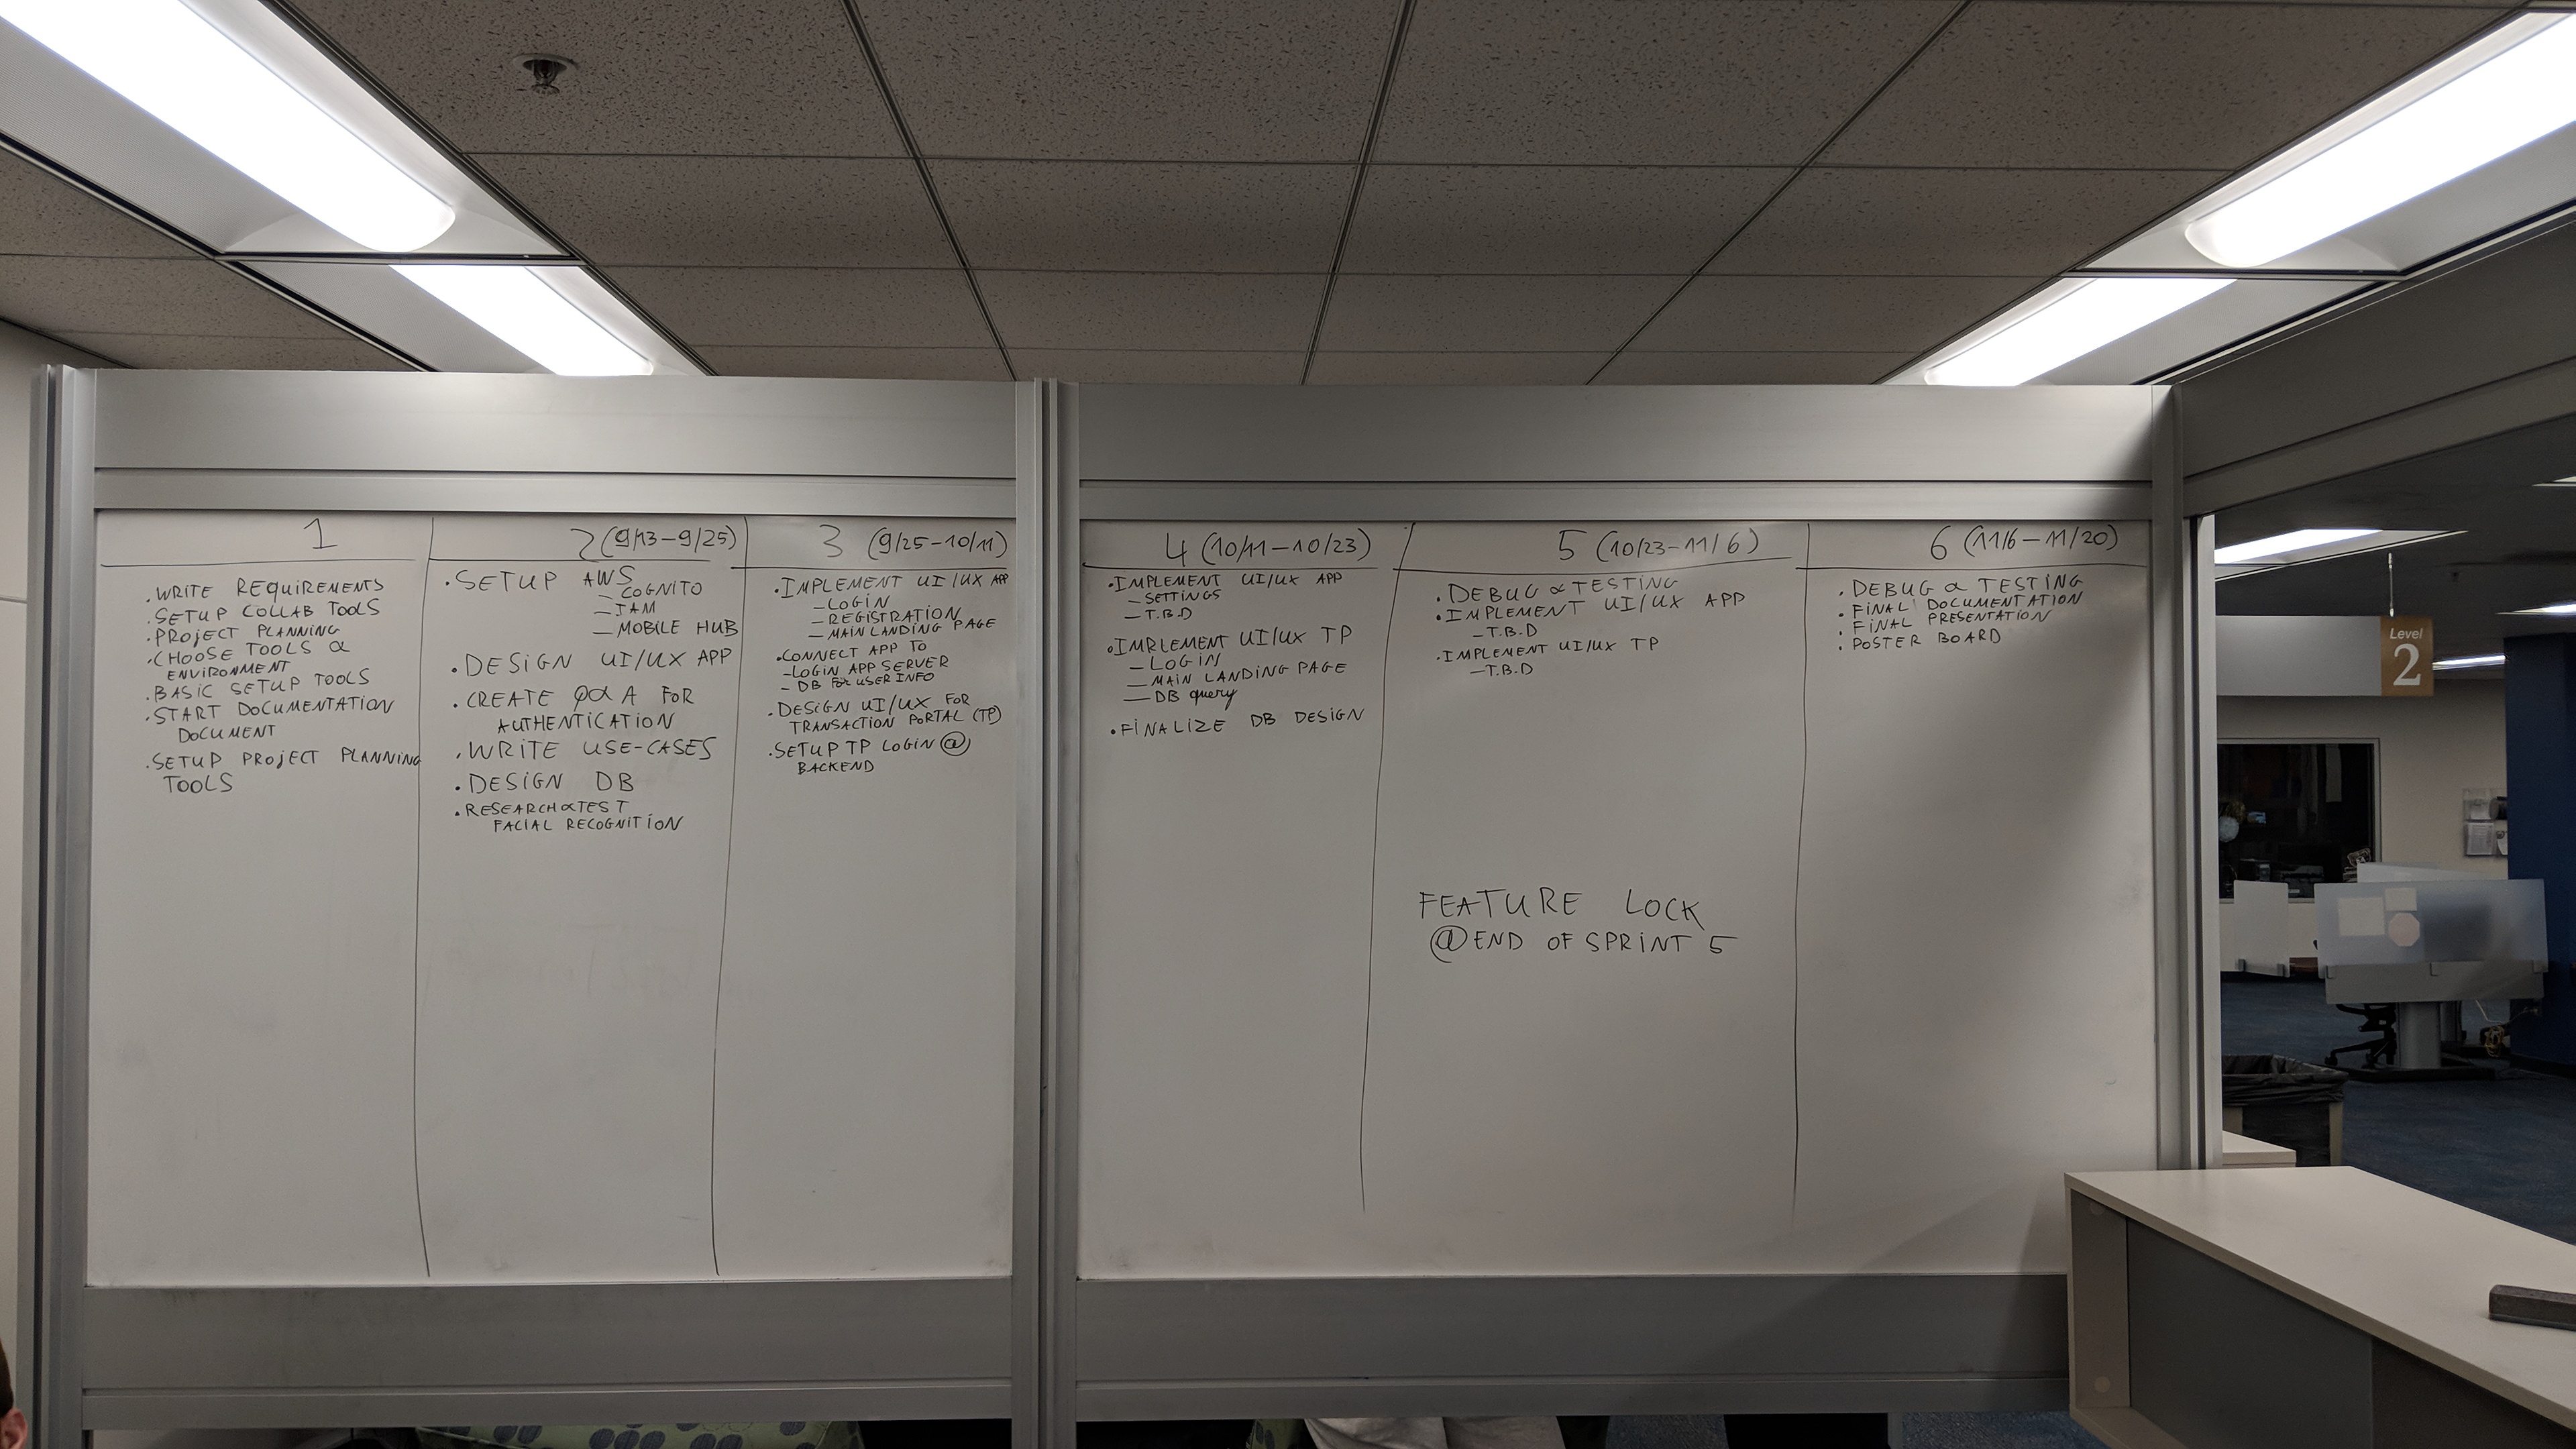 1
. WRITE REQUIREMENTS
. SETUP COLLAB TOOLS
. PROJECT PLANNING
. CHOOSE TOOLS &
ENVIRONMENT
. BASIC SETUP TOOLS
. START DOCUMENTATION
DOCUMENT
. SETUP PROJECT PLANNING
TOOLS
2 (9/13-9/25)
. SETUP AWS
- COGNITO
- IAM
- MOBILE HUB
. DESIGN UI/UX APP
. CREATE Q&A FOR
AUTHENTICATION
. WRITE USE-CASES
. DESIGN DB
. RESEARCH & TEST
FACIAL RECOGNITION
3 (9/25-10/11)
. IMPLEMENT UI/UX APP
- LOGIN
- REGISTRATION
- MAIN LANDING PAGE
. CONNECT APP TO
- LOGIN APP SERVER
- DB FOR USER INFO
. DESIGN UI/UX FOR
TRANSACTION PORTAL (TP)
. SETUP TP LOGIN @
BACKEND
4 (10/11-10/23)
. IMPLEMENT UI/UX APP
- SETTINGS
- T.B.D
. IMPLEMENT UI/UX TP
- LOGIN
- MAIN LANDING PAGE
- DB query
. FINALIZE DB DESIGN
5 (10/23-11/6)
. DEBUG & TESTING
. IMPLEMENT UI/UX APP
- T.B.D
. IMPLEMENT UI/UX TP
- T.B.D
FEATURE LOCK
@ END OF SPRINT 5
6 (11/6-11/20)
. DEBUG & TESTING
. FINAL DOCUMENTATION
. FINAL PRESENTATION
. POSTER BOARD
Level
2